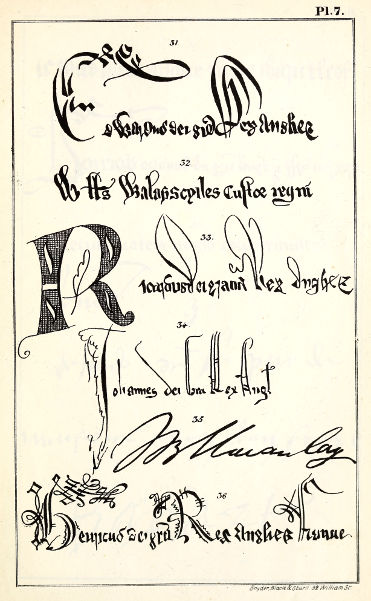 Pl.7.
31
Edwardus dei gra Rex Anglież
32
Custos regni
33
Ricardus dei gratia Rex Anglież
34
Johannes dei Gra Rex Angl
35
T B Macaulay
36
Henricus dei gra Rex Anglież
Snyder, Black & Sturn, 92 William St.